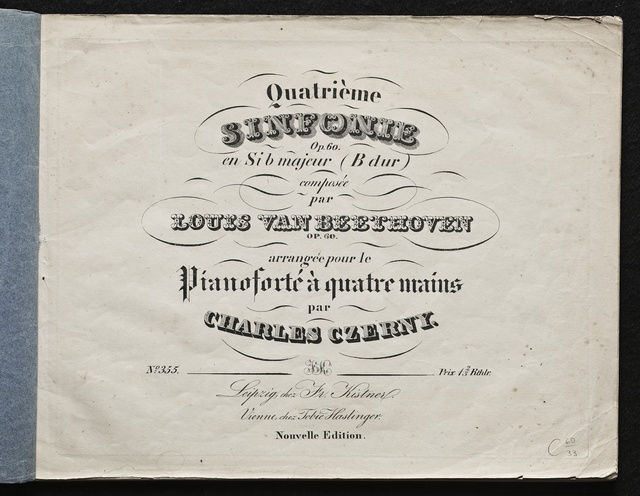 Quatrième
SINFONIE
Op. 60.
en Si b majeur (B dur)
composée
par
LOUIS VAN BEETHOVEN
OP. 60.
arrangée pour le
Pianoforté à quatre mains
par
CHARLES CZERNY.
No. 355.
Leipzig, chez Fr. Kistner.
Vienne, chez Tobie Haslinger.
Nouvelle Edition.
C 60
33